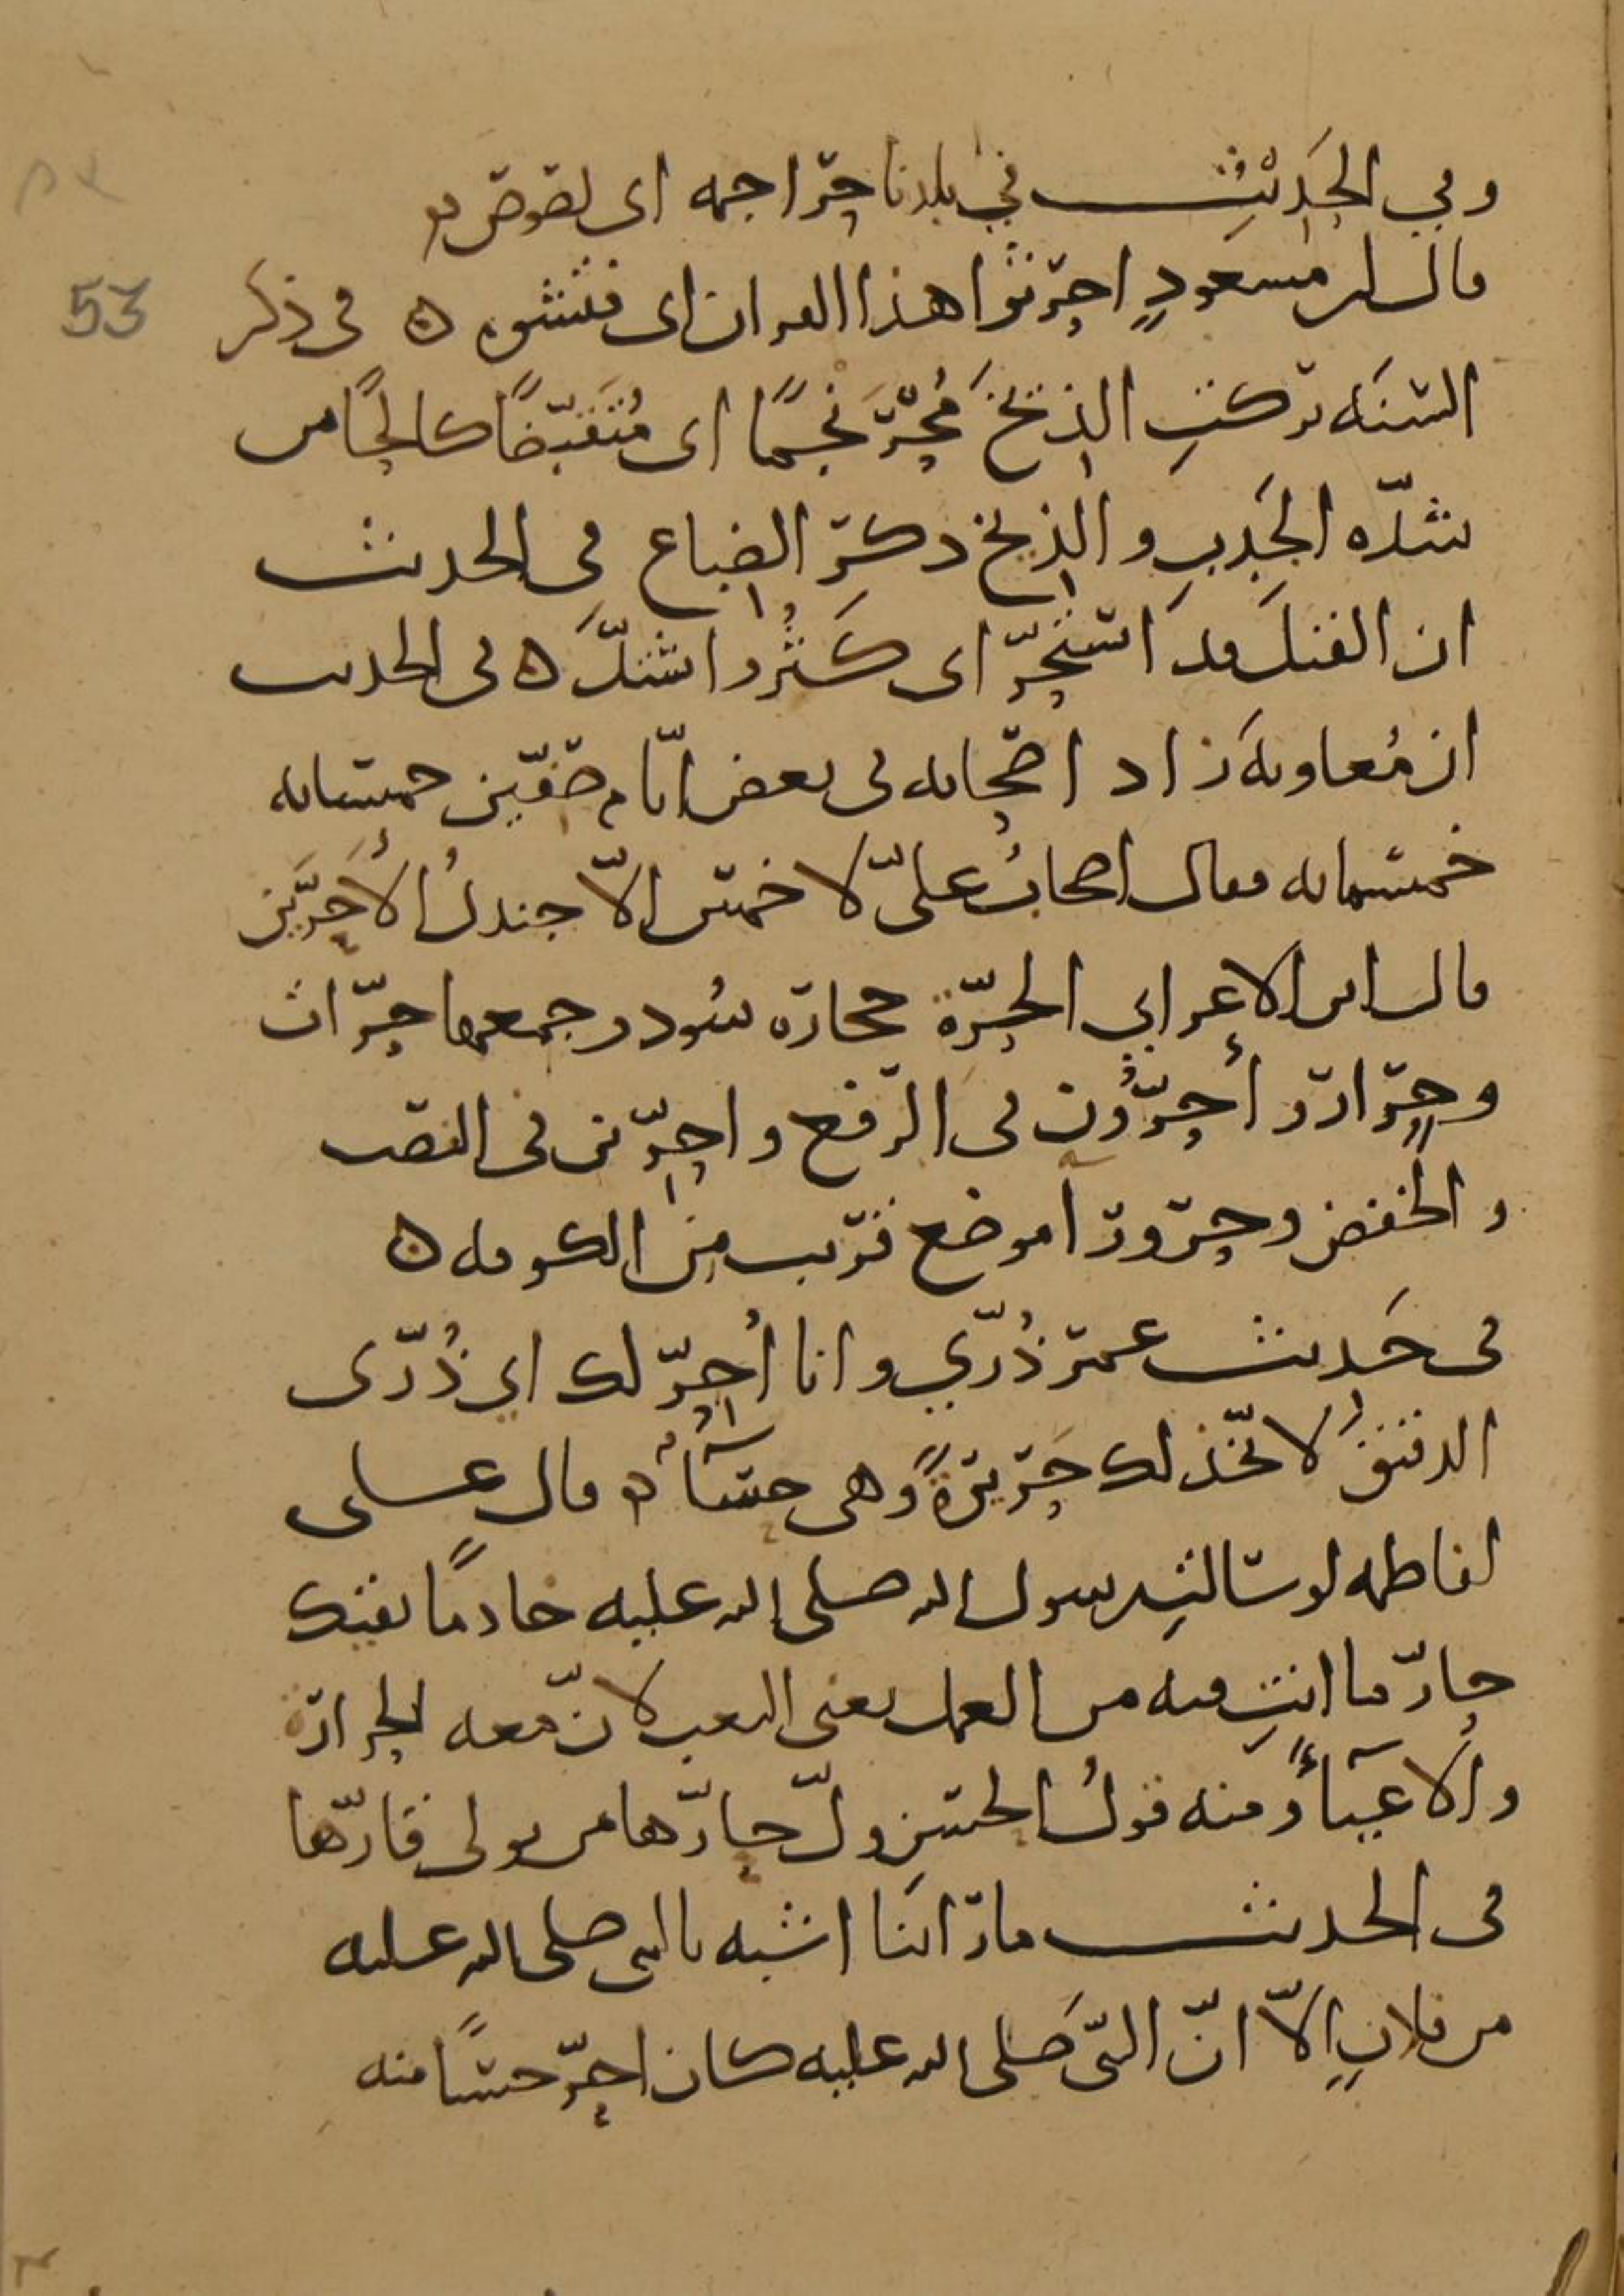 وفي الحَدِيْثِ في بلدنا حرّاجمه اى لصوص
قال ابن مسعودٍ احرثوا هذا القران اى فتشوه ۵ فى ذكر
السّنَه تركتِ الذيخَ مُحْرَنْجمًا اى مُتَقَبِّضًا كالحًا من
شدّه الجَدبِ والذِيخ ذكرَ الضِباع فى الحديث
ان القتلَ قد استَحَرّ اى كَثُر واشتدَّ ۵ فى الحديث
ان مُعاويهَ زاد اصحابه فى بعض ايّام صفّين خمسمايه
خمسمايه فقال اصحابُ علىّ لا خمس الاّ جندلُ الأَحَرِّين
قال ابن الاعرابي الحَرّة حجارة سُود وجمعها حرّات
وحِرّار وأحرُّون فى الرّفع واحِرّين فى النصب
والخفض وحرورَآ موضع قريب مِن الكوفه ۵
فى حَديث عمر ذُرّي وانا اُحِرّ لك اي ذُرّى
الدقيقَ لاتّخِذ لك حَريرةً وهى حسَآءٌ ۵ قال على
لفاطمه لو سالتِ رسول الله صلى الله عليه خادمًا يقيك
حارّ ما انتِ فيه من العمل يعنى التعب لانّ معه الحرارة
والاِعيَآءُ ومنه قولُ الحسنِ ولّ حارّها من تولى قارّها
فى الحديث ما رَاَينَا اشبه بالنبى صلى الله عليه
من فلانٍ الاّ انّ النبىَّ صَلى الله عليه كان احرّ حسنًا منه
53